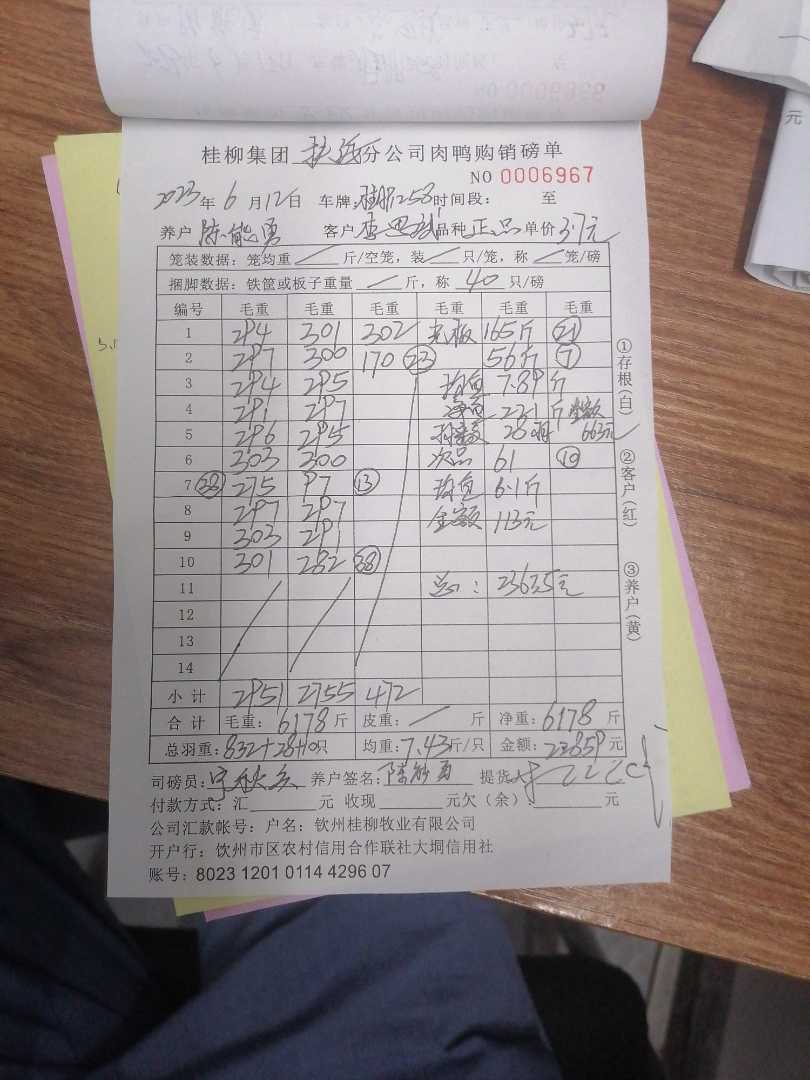 桂柳集团 分公司肉鸭购销磅单
NO 0006967
2023年6月12日 车牌: 1258 时间段: 至
养户 陈能勇 客户 李 品种 正品 单价 3.7元
笼装数据: 笼均重 / 斤/空笼, 装 / 只/笼, 称 / 笼/磅
捆脚数据: 铁筐或板子重量 / 斤, 称 40 只/磅
编号 毛重 毛重 毛重 毛重 毛重 毛重
1 294 301 302 毛板 165斤 21
2 297 300 170 23 56斤 7
3 294 295 均重 7.89斤
4 291 297 净重 221斤 金额
5 296 295 28 663元
6 303 300 次品 61 10
7 38 275 97 13 均重 6.1斤
8 297 297 金额 113元
9 303 291
10 301 282 38
11 总: 23635元
12
13
14
小计 2951 2755 472
合计 毛重: 6178斤 皮重: / 斤 净重: 6178斤
总羽重: 832+28+10只 均重: 7.43斤/只 金额: 22859元
司磅员: 养户签名: 陈能勇 提货
付款方式: 汇 元 收现 元欠(余): 元
公司汇款帐号: 户名: 钦州桂柳牧业有限公司
开户行: 钦州市区农村信用合作联社大垌信用社
账号: 8023 1201 0114 4296 07
①存根(白)
②客户(红)
③养户(黄)
元